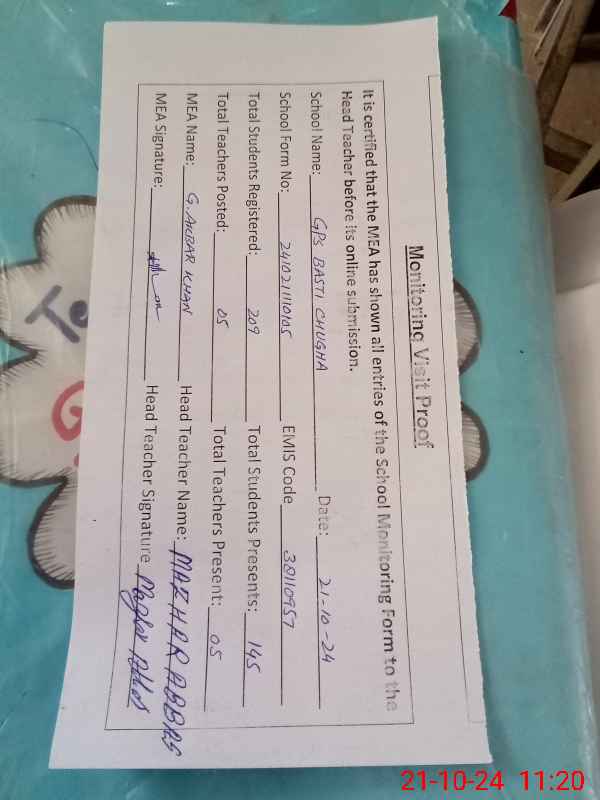 Monitoring Visit Proof
It is certified that the MEA has shown all entries of the School Monitoring Form to the
Head Teacher before its online submission.
School Name: GPS BASTI CHUGHA Date: 21-10-24
School Form No: 241021110105 EMIS Code 38110957
Total Students Registered: 209 Total Students Presents: 145
Total Teachers Posted: 05 Total Teachers Present: 05
MEA Name: G. AKBAR KHAN Head Teacher Name: MAZHAR ABBAS
MEA Signature: Head Teacher Signature Mazhar Abbas
21-10-24 11:20